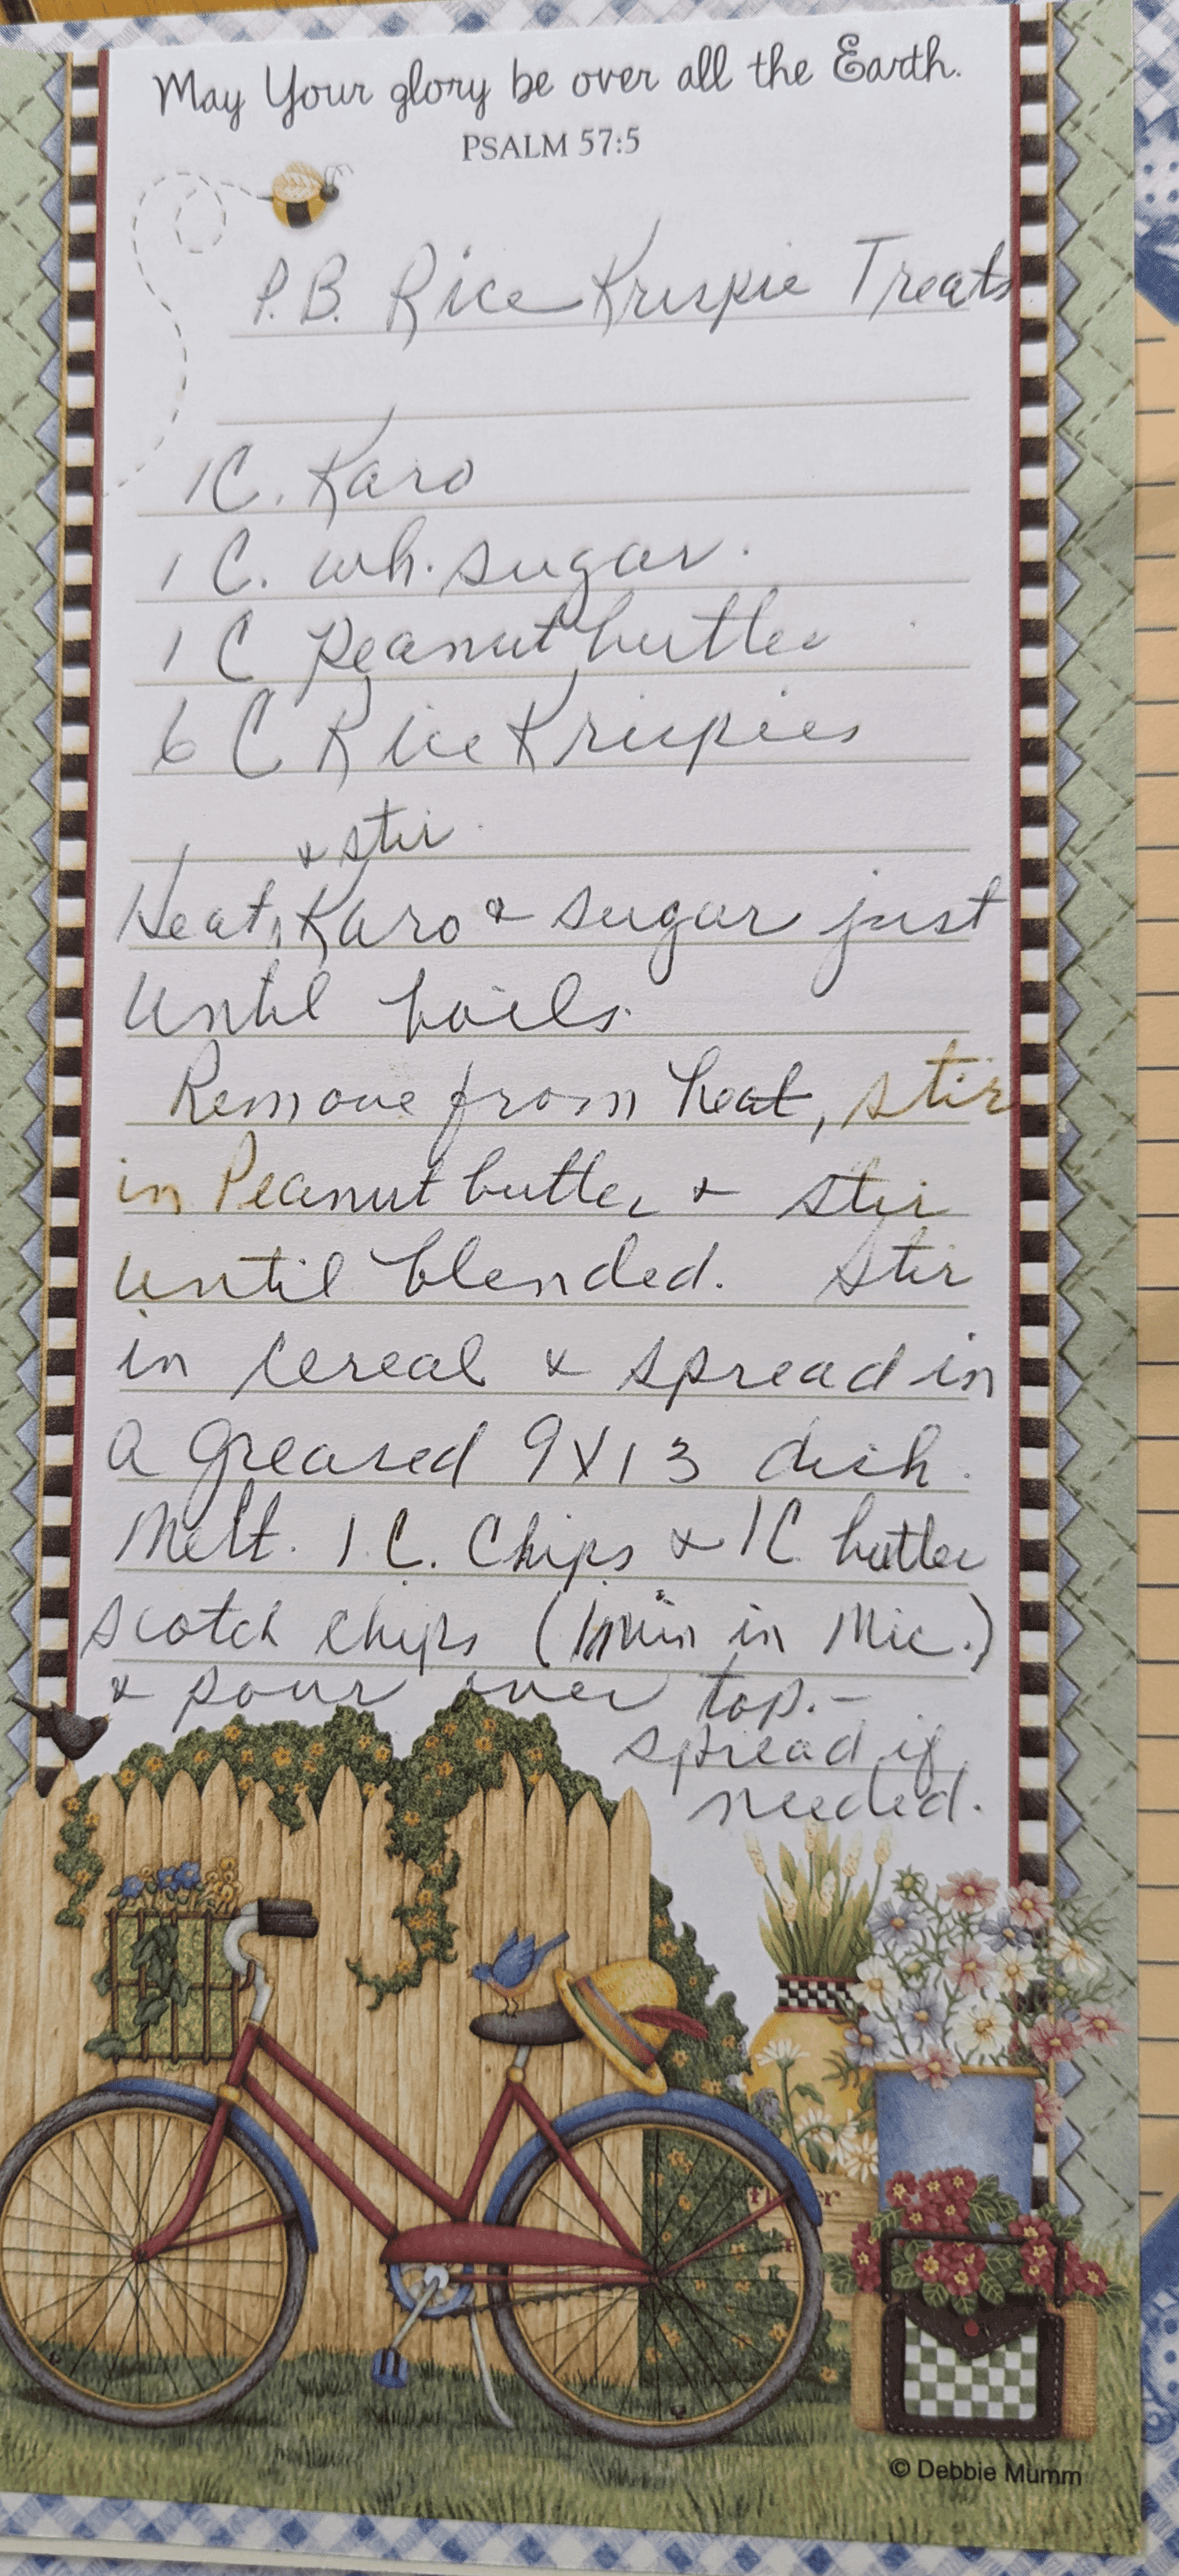 May Your glory be over all the Earth.
PSALM 57:5
P.B. Rice Krispie Treats
1C. Karo
1 C. wh. sugar.
1 C Peanut butter
6 C Rice Krispies
& stir
Heat, Karo & sugar just
until boils.
Remove from heat, stir
in Peanut butter & stir
until blended. Stir
in cereal & spread in
a greased 9X13 dish.
Melt. 1 C. Chips & 1C butter
scotch chips (1 min in Mic.)
& pour over top. -
spread if
needed.
© Debbie Mumm